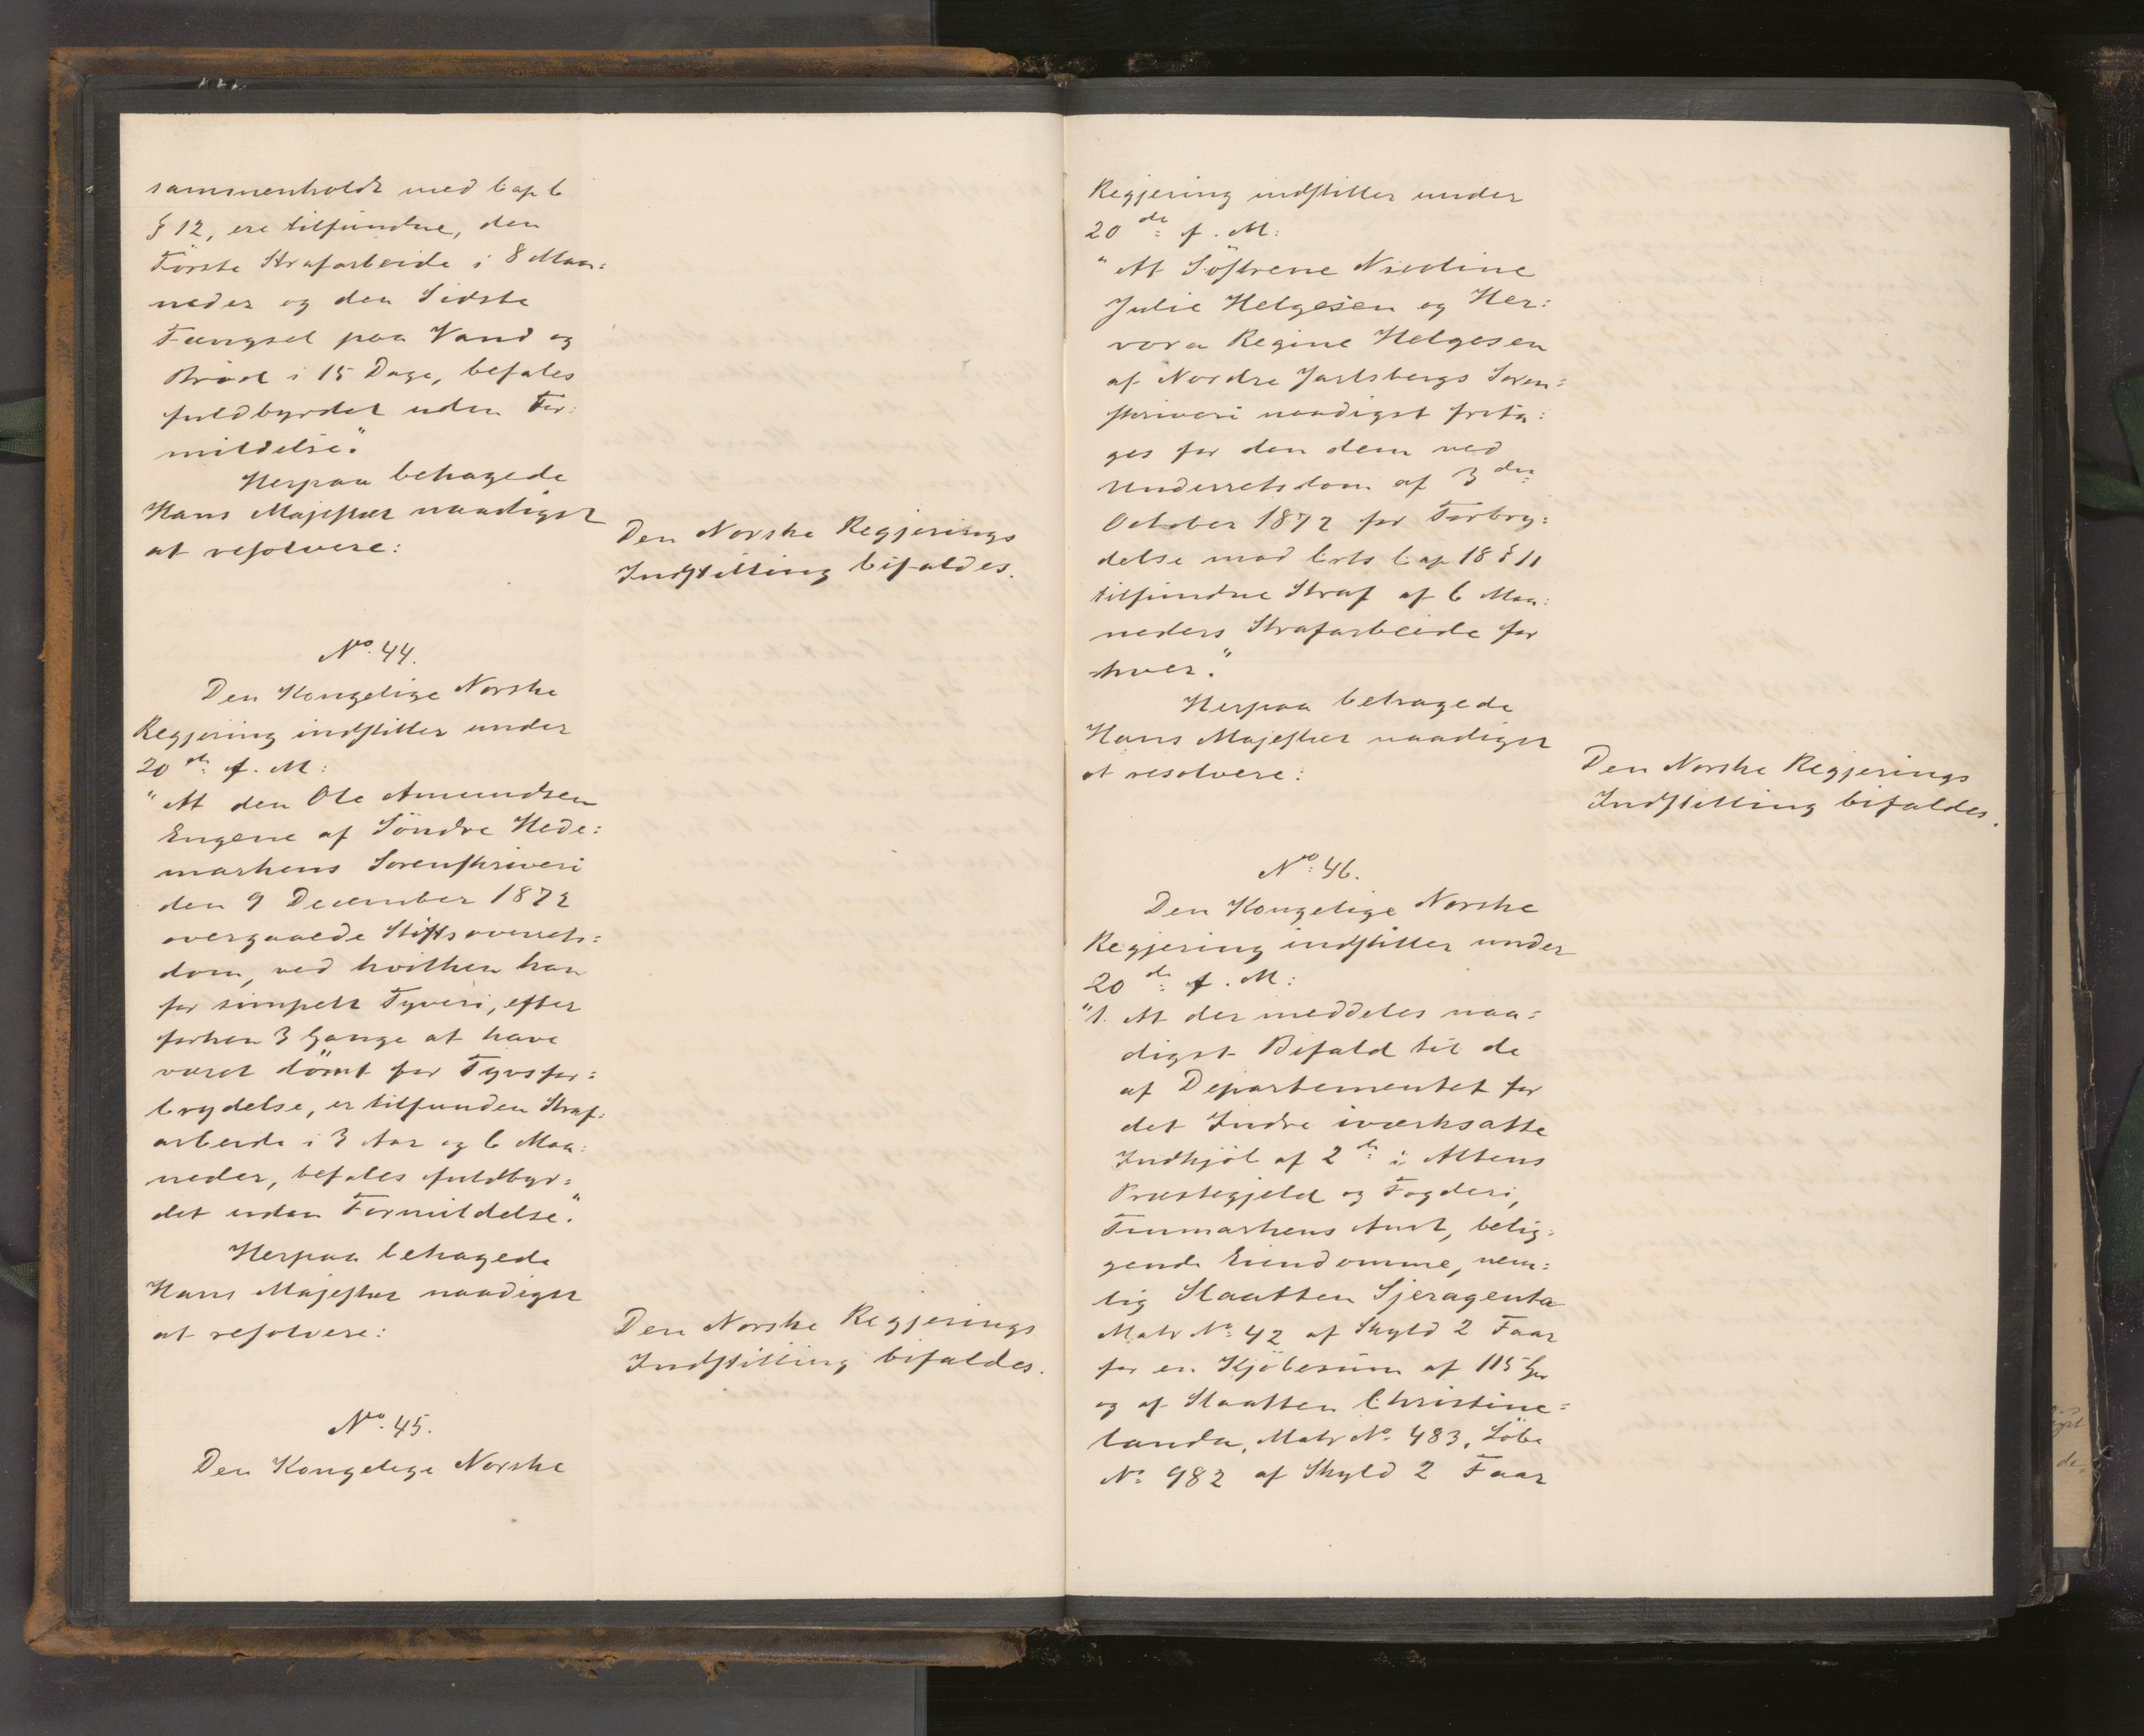 sammenholdt med Cap 6
§ 12, ere tilfundne, den
Förste Strafarbeide i 8 Maa:
neder og den Sidste
Fængsel paa Vand og
Bröd i 15 Dage, befales
fuldbyrdet uden For:
mildelse."
Herpaa behagede
Hans Majestæt naadigst
at resolvere:
Den Norske Regjerings
Indstilling bifaldes.
No. 44.
Den Kongelige Norske
Regjering indstiller under
20de f. M:
"At den Ole Amundsen
Engene af Söndre Hede:
markens Sorenskriveri
den 9 December 1872
overgaaede Stiftsoverrets:
dom, ved hvilken han
for simpelt Tyveri, efter
forhen 3 Gange at have
været dömt for Tyvsfor:
brydelse, er tilfunden Straf:
arbeide i 3 Aar og 6 Maa:
neder, befales fuldbyr:
det uden Formildelse."
Herpaa behagede
Hans Majestæt naadigst
at resolvere:
Den Norske Regjerings
Indstilling bifaldes.
No. 45.
Den Kongelige Norske
Regjering indstiller under
20de f. M:
"At Söstrene Nicoline
Julie Helgesen og Her:
vora Regine Helgesen
af Nordre Jarlsbergs Soren:
skriveri naadigst frita:
ges for den dem ved
Underretsdom af 3den
October 1872 for Forbry:
delse mod Crls Cap 18 § 11
tilfundne Straf af 6 Maa:
neders Strafarbeide for
hver."
Herpaa behagede
Hans Majestæt naadigst
at resolvere:
Den Norske Regjerings
Indstilling bifaldes.
No. 46.
Den Kongelige Norske
Regjering indstiller under
20de f. M:
"1. At der meddeles naa:
digst Bifald til de
af Departementet for
det Indre iværksatte
Indkjöb af 2de i Altens
Præstegjeld og Fogderi,
Finmarkens Amt, belig:
gende Eiendomme, nem:
lig Slaatten Sjeragenta
Matr No. 42 af Skyld 2 Faar
for en Kjöbesum af 115 Spd
og af Slaatten Christine:
landa, Matr No. 483, Löbe
No. 982 af Skyld 2 Faar